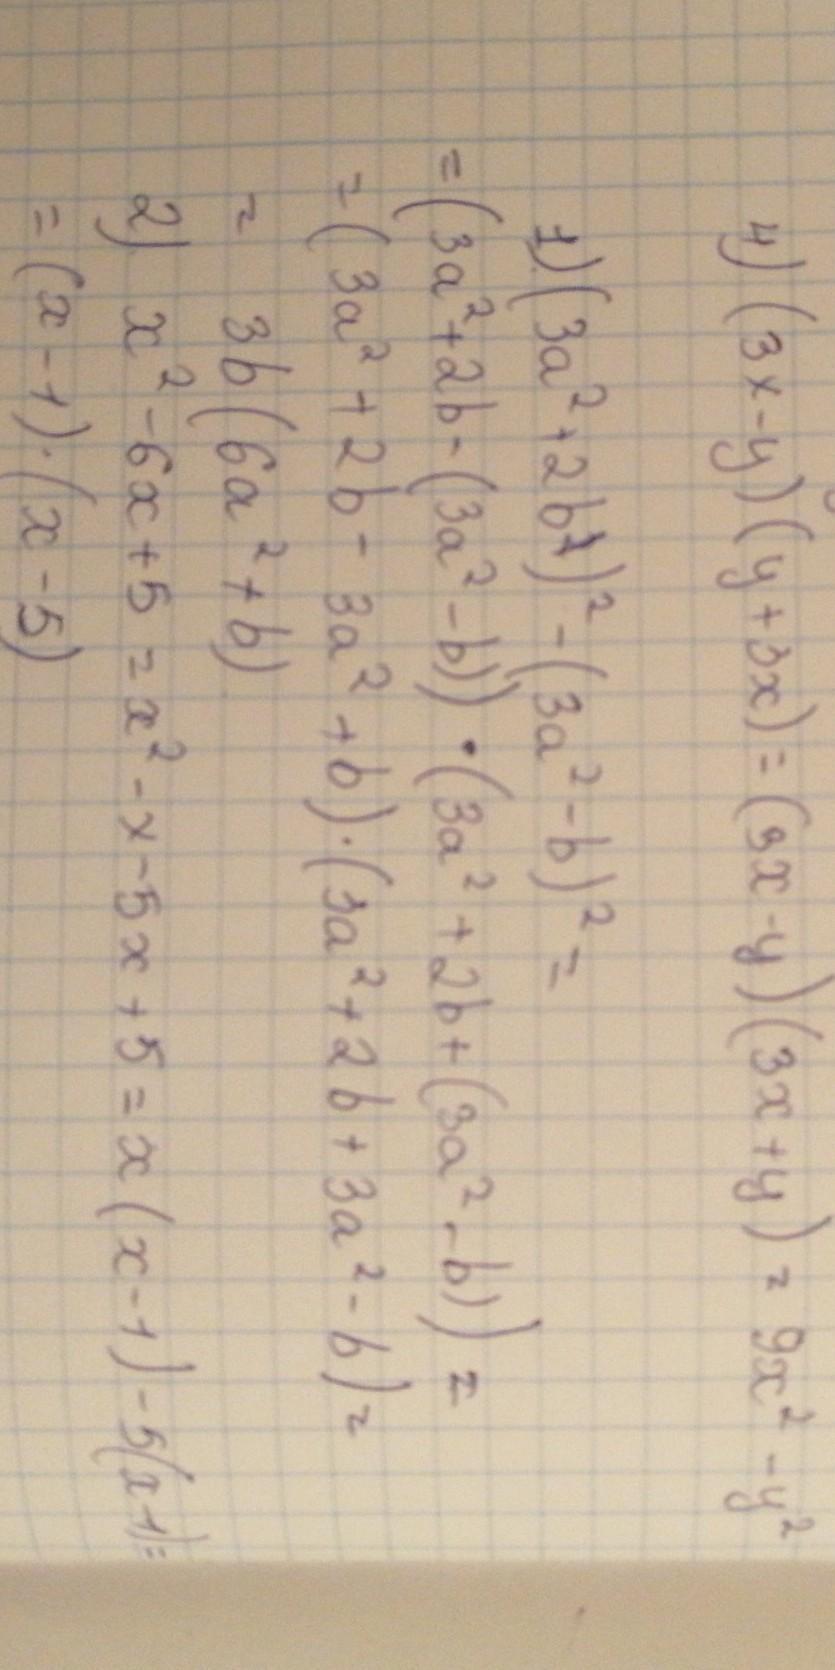 4) (3x-y)(y+3x) = (3x-y)(3x+y) = 9x² - y²
1) (3a²+2b)² - (3a²-b)² =
= (3a²+2b-(3a²-b)) · (3a²+2b+(3a²-b)) =
= (3a²+2b-3a²+b) · (3a²+2b+3a²-b) =
= 3b(6a²+b)
2) x²-6x+5 = x²-x-5x+5 = x(x-1)-5(x-1) =
= (x-1)·(x-5)